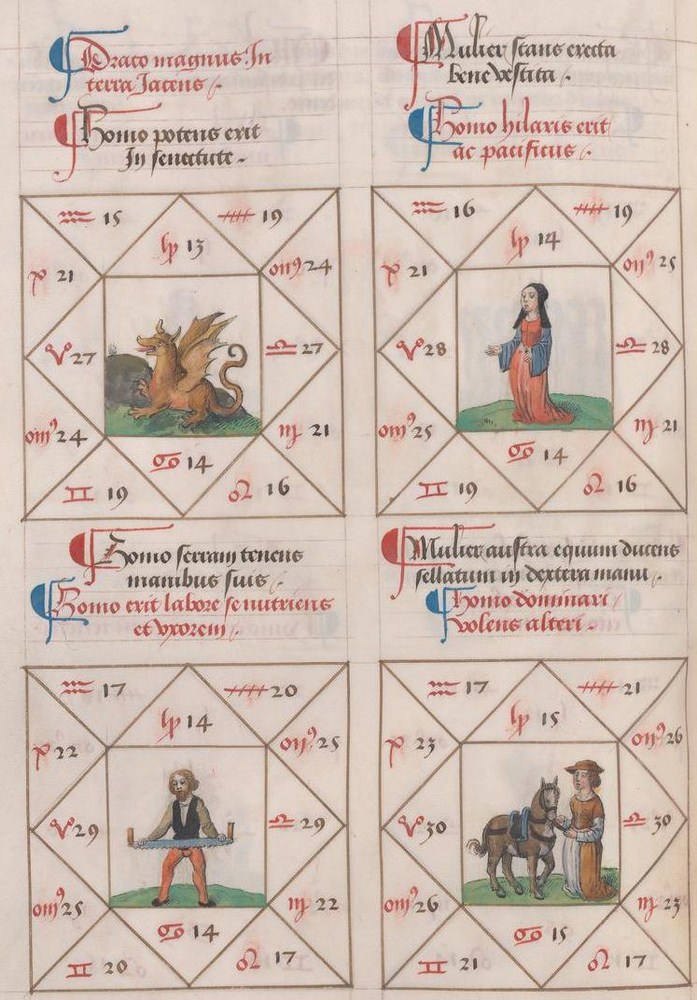 Draco magnus In
terra Jacens
Homo potens erit
In senectute
♒ 15
19
♑ 13
24
♎ 27
♍ 21
♌ 16
♋ 14
♊ 19
24
♈ 27
21
Mulier stans erecta
bene vestita
Homo hilaris erit
ac pacificus
♒ 16
19
♑ 14
25
♎ 28
♍ 21
♌ 16
♋ 14
♊ 19
25
♈ 28
21
Homo serram tenens
manibus suis
Homo erit labore se nutriens
et vxorem
♒ 17
20
♑ 14
25
♎ 29
♍ 22
♌ 17
♋ 14
♊ 20
25
♈ 29
22
Mulier austra equum ducens
sellatum in dextera manu
Homo dominari
volens alteri
♒ 17
21
♑ 15
26
♎ 30
♍ 23
♌ 17
♋ 15
♊ 21
26
♈ 30
23